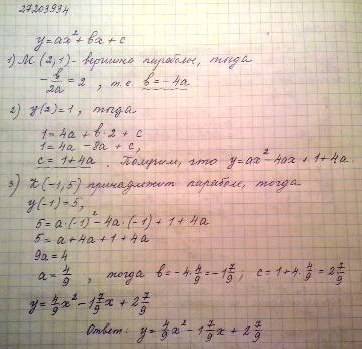 27203934
y=ax²+bx+c
1) M(2,1) - вершина параболы, тогда
-b/2a=2, т.е. b=-4a
2) y(2)=1, тогда
1=4a+b·2+c
1=4a-8a+c,
c=1+4a. Получим, что y=ax²-4ax+1+4a.
3) K(-1,5) принадлежит параболе, тогда
y(-1)=5,
5=a·(-1)²-4a·(-1)+1+4a
5=a+4a+1+4a
9a=4
a=4/9, тогда b=-4·4/9=-1 7/9; c=1+4·4/9=2 7/9
y=4/9x²-1 7/9x+2 7/9
Ответ: y=4/9x²-1 7/9x+2 7/9